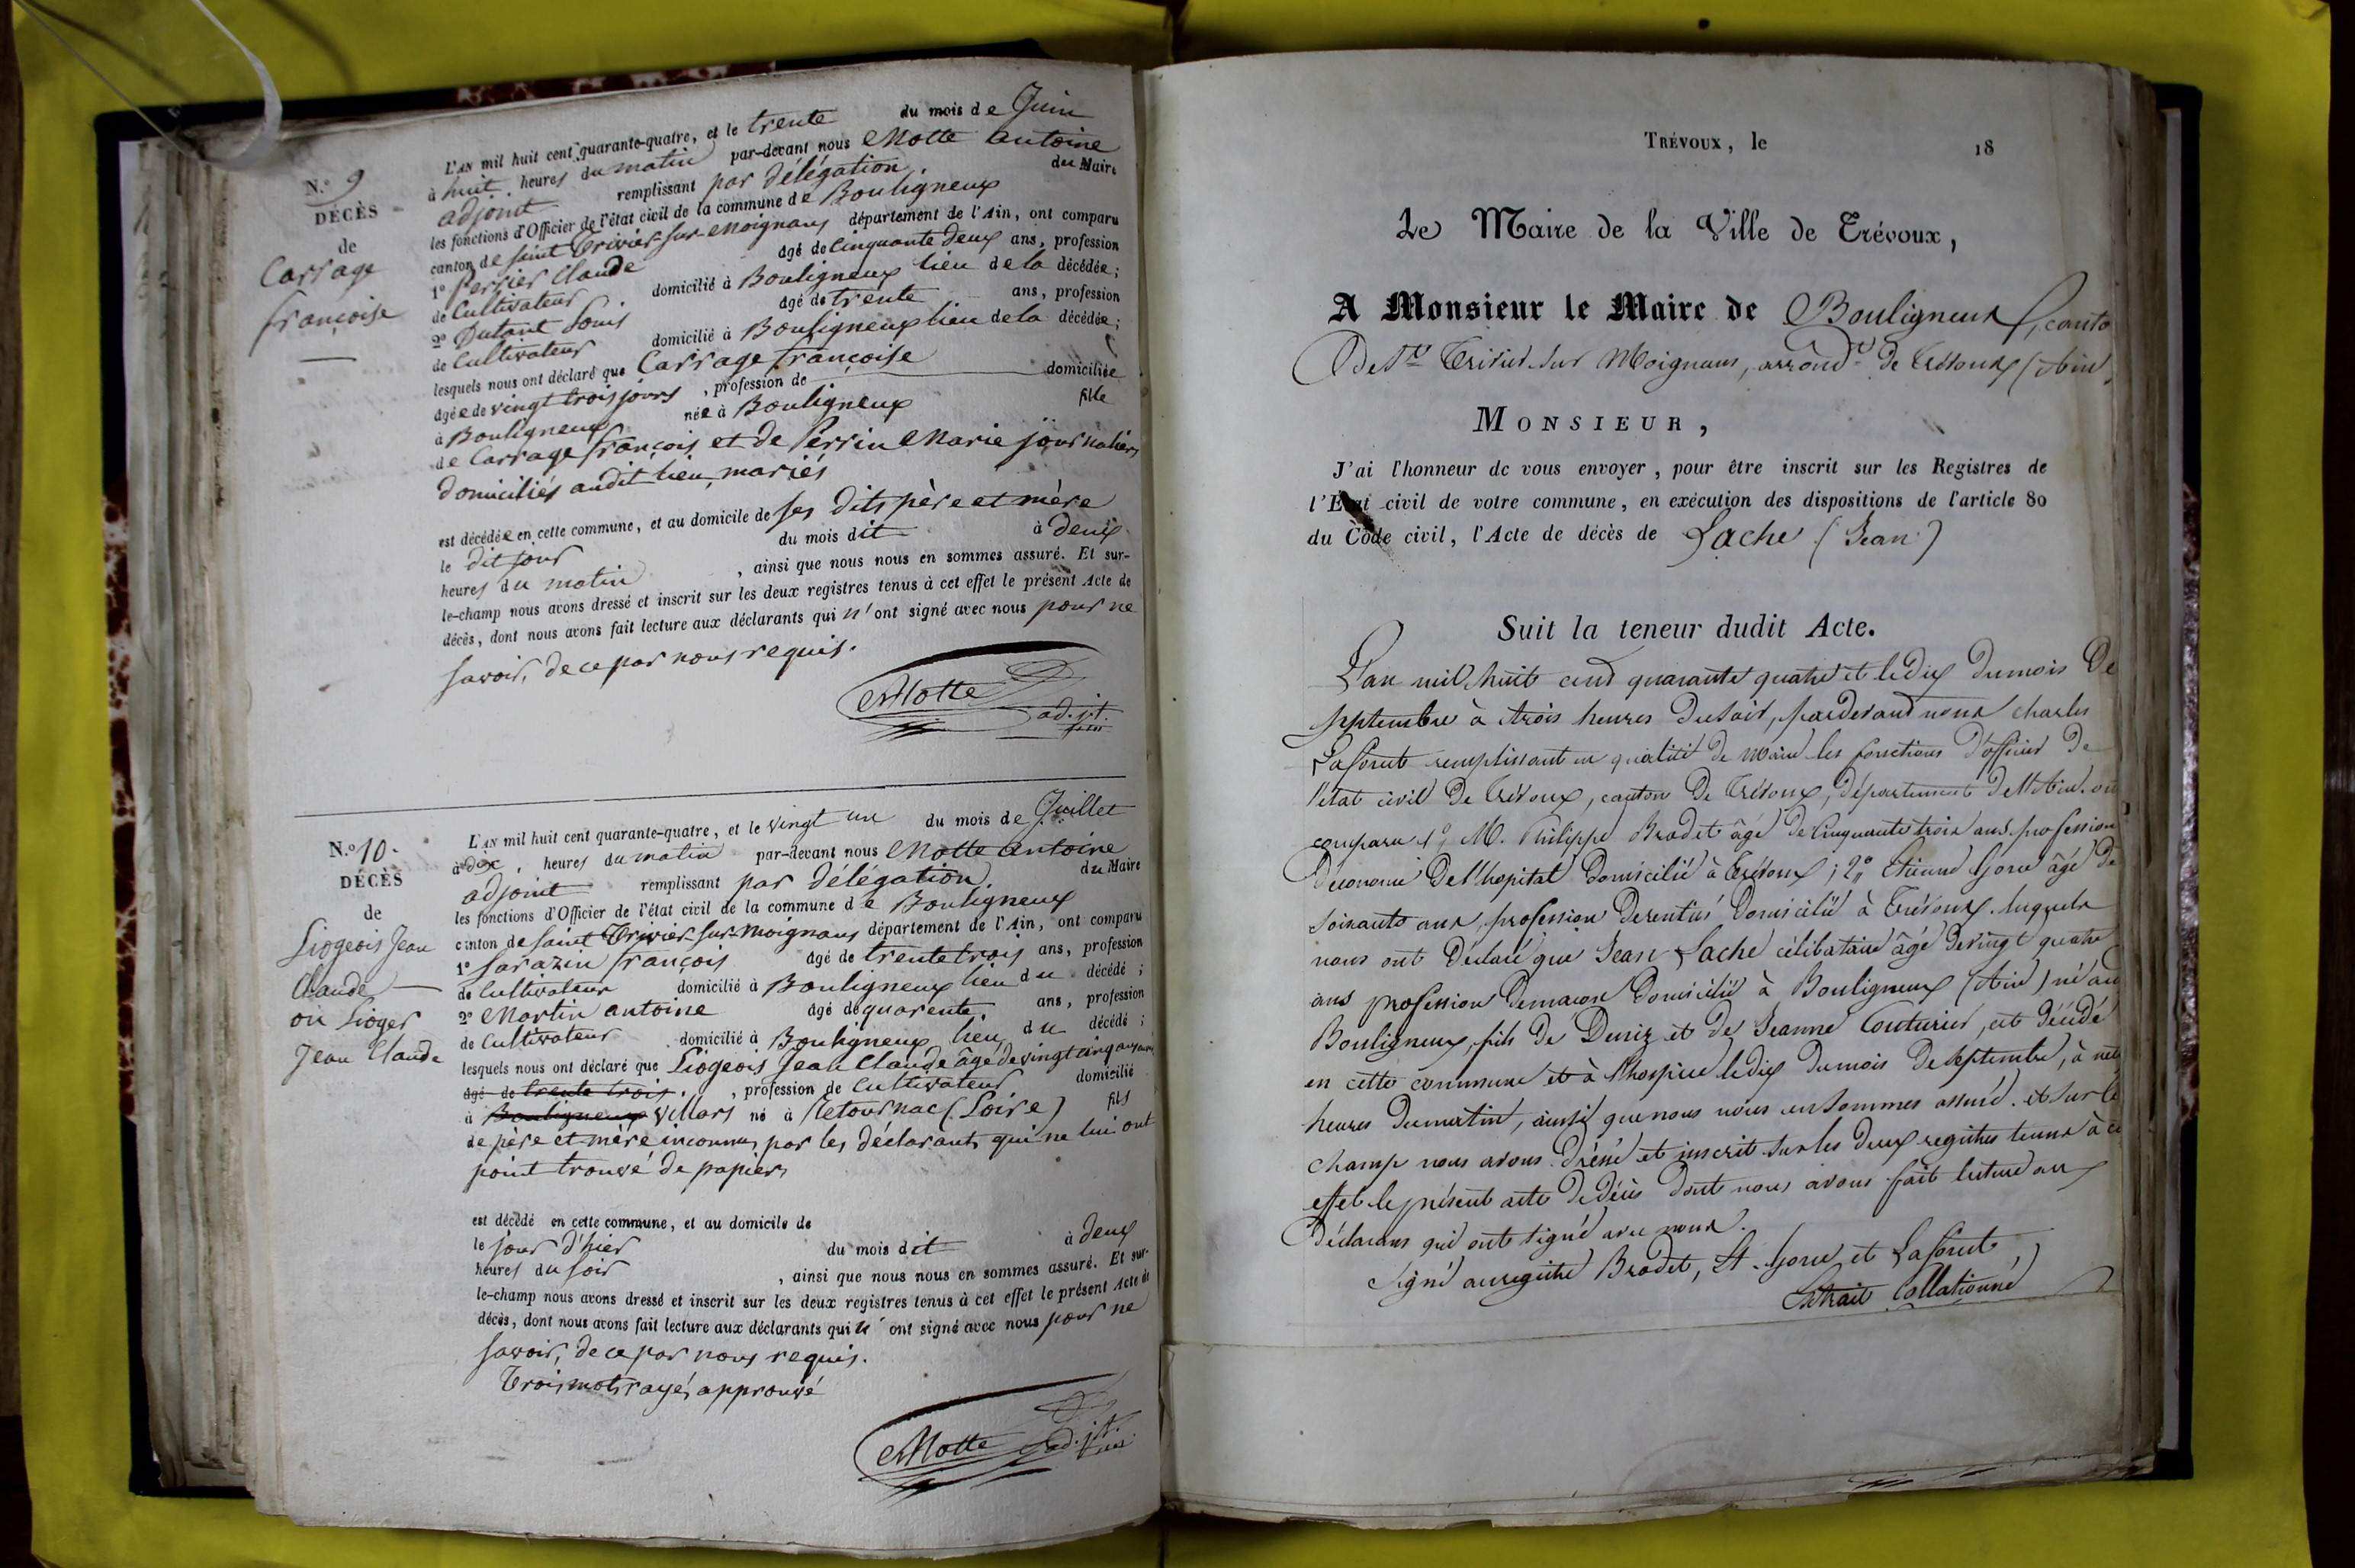 N.º 9
DÉCÈS
de
Carrage
françoise
L'AN mil huit cent quarante-quatre, et le trente du mois de Juin
à huit heures du matin par-devant nous Motte antoine
adjoint remplissant par délégation du Maire
les fonctions d'Officier de l'état civil de la commune de Bouligneux
canton de saint Trivier sur Moignans département de l'Ain, ont comparu
1º Perrier Claude âgé de cinquante deux ans, profession
de Cultivateur domicilié à Bouligneux lieu de la décédée;
2º Dutant Louis âgé de trente ans, profession
de Cultivateur domicilié à Bouligneux lieu de la décédée;
lesquels nous ont déclaré que Carrage françoise
âgée de vingt trois jours, profession de domiciliée
à Bouligneux née à Bouligneux fille
de Carrage françois et de Perrin Marie journaliers
domiciliés audit lieu, mariés
est décédée en cette commune, et au domicile de ses dits père et mère
le dit jour du mois dit à deux
heures du matin, ainsi que nous nous en sommes assuré. Et sur-
le-champ nous avons dressé et inscrit sur les deux registres tenus à cet effet le présent Acte de
décès, dont nous avons fait lecture aux déclarants qui n'ont signé avec nous pour ne
savoir, de ce par nous requis.
Motte
adj.t
N.º 10.
DÉCÈS
de
Liogeois Jean
Claude
ou Lioger
Jean Claude
L'AN mil huit cent quarante-quatre, et le vingt un du mois de Juillet
à dix, heures du matin par-devant nous Motte Antoine
adjoint remplissant par délégation du Maire
les fonctions d'Officier de l'état civil de la commune de Bouligneux
canton de saint Trivier sur moignans département de l'Ain, ont comparu
1º Sarazin françois âgé de trente trois ans, profession
de Cultivateur domicilié à Bouligneux lieu du décédé;
2º Martin antoine âgé de quarente. ans, profession
de Cultivateur domicilié à Bouligneux lieu du décédé;
lesquels nous ont déclaré que Liogeois Jean Claude âgé de vingt cinq ans
âgé de trente trois, profession de Cultivateur domicilié
à Bouligneux Villars né à Retournac (Loire) fils
de père et mère inconnus par les déclarants qui ne lui ont
point trouvé de papiers
est décédé en cette commune, et au domicile de
le jour d'hier du mois dit à deux
heures du soir, ainsi que nous nous en sommes assuré. Et sur-
le-champ nous avons dressé et inscrit sur les deux registres tenus à cet effet le présent Acte de
décès, dont nous avons fait lecture aux déclarants qui n'ont signé avec nous pour ne
savoir, de ce par nous requis.
Trois mots rayés approuvé
Motte adj.t
TRÉVOUX, le 18
Le Maire de la Ville de Trévoux,
A Monsieur le Maire de Bouligneux, canto
de St Trivier sur Moignans, arrond.t de Trévoux (Ain
MONSIEUR,
J'ai l'honneur de vous envoyer, pour être inscrit sur les Registres de
l'Etat civil de votre commune, en exécution des dispositions de l'article 80
du Code civil, l'Acte de décès de Lache (Jean)
Suit la teneur dudit Acte.
L'an mil huit cent quarante quatre et le dix du mois de
septembre à trois heures du soir, pardevant nous Charles
Laforest remplissant en qualité de maire les fonctions d'officier de
l'état civil de Trévoux, canton de Trévoux, département de l'Ain. ont
comparu 1º M. Philippe Bradet âgé de cinquante trois ans profession
d'économe de l'hopital domicilié à Trévoux; 2º Etienne Gorre âgé de
soixante ans, profession de rentier domicilié à Trévoux. lesquels
nous ont déclaré que Jean Lache célibataire âgé de vingt quatre
ans profession de maçon domicilié à Bouligneux (Ain) né au
Bouligneux, fils de Deniz et de Jeanne Couturier, est décédé
en cette commune et à l'hospice le dix du mois de septembre, à
heures du matin, ainsi que nous nous en sommes assuré. et sur le
champ nous avons dressé et inscrit sur les deux registres tenus à ce
effet le présent acte de décès dont nous avons fait lecture aux
déclarans qui ont signé avec nous.
Signé au registre Bradet, Et. Gorre et Laforest
Extrait Collationné